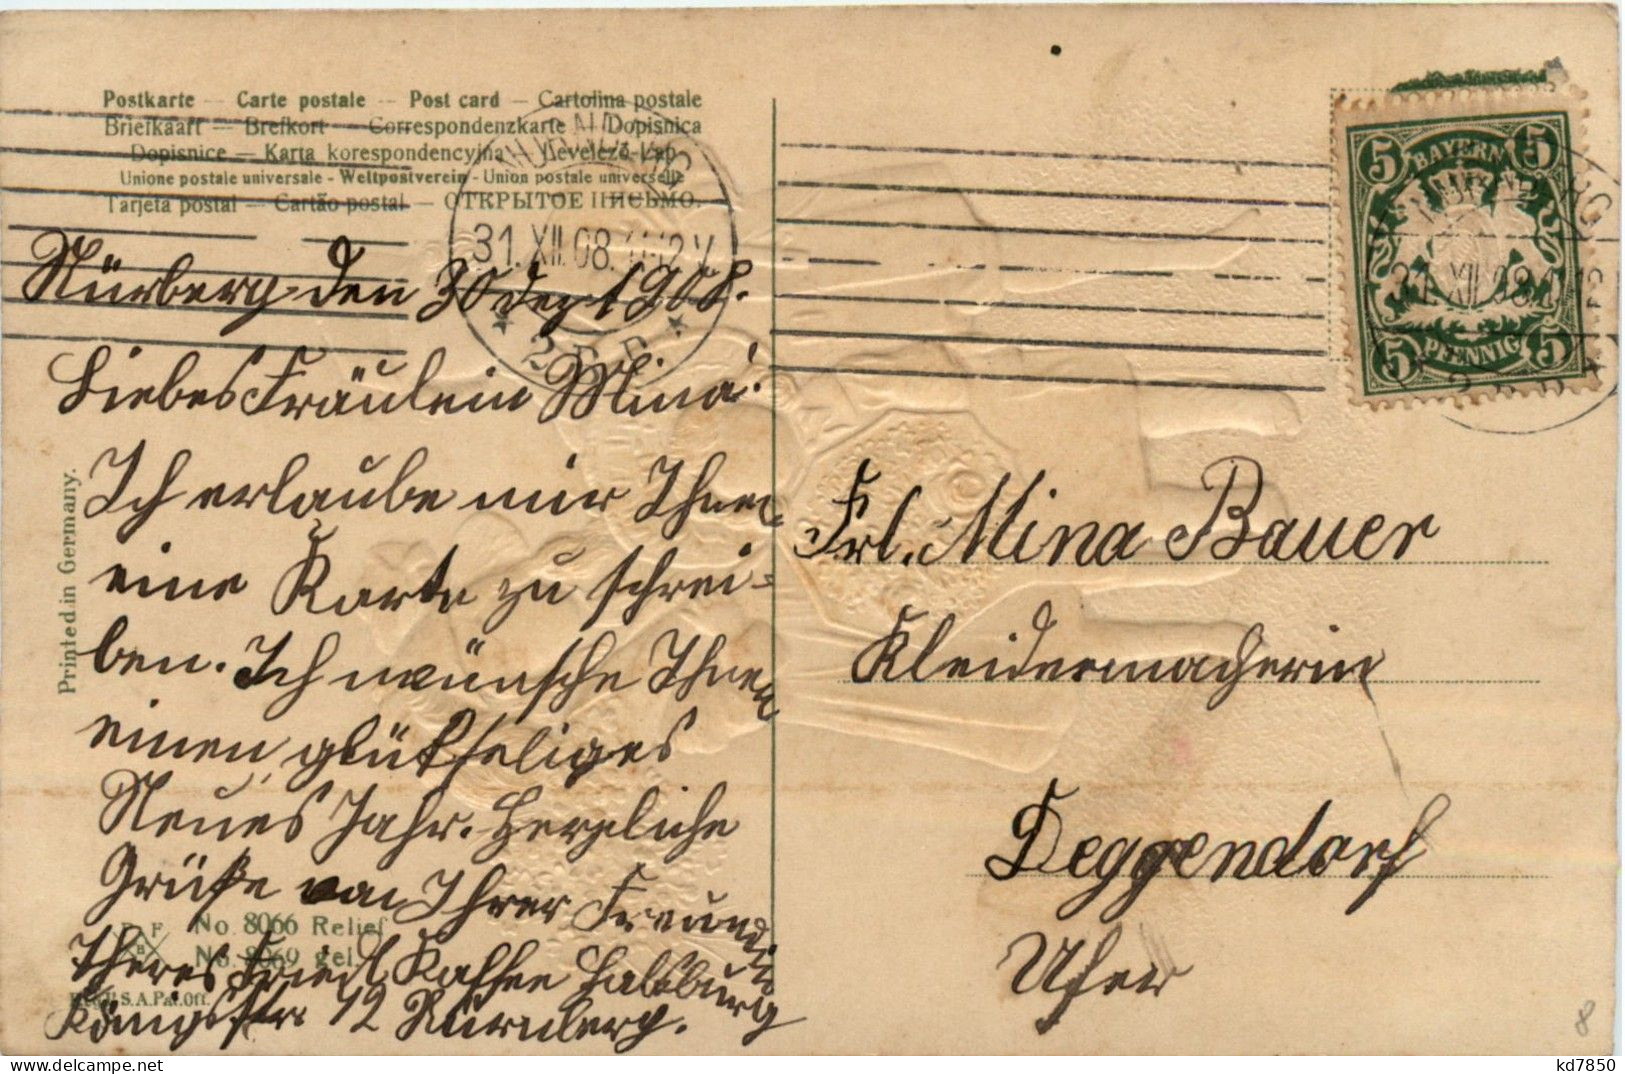 Postkarte — Carte postale — Post card — Cartolina postale
Briefkaart — Brefkort — Correspondenzkarte — Dopisnica
Dopisnice — Karta korespondencyjna — Levelező-Lap
Unione postale universale - Weltpostverein - Union postale universelle
Tarjeta postal — Cartão postal — ОТКРЫТОЕ ПИСЬМО.
31.XII.08. 11-12 V
* 2 B.P. *
5 BAYERN 5
5 PFENNIG 5
31.XII.08.
Nürberg den 30 Dez 1908.
Liebes Fräulein Mina.
Ich erlaube mir Ihnen
eine Karte zu schrei=
ben. Ich wünsche Ihnen
einen glükseliges
Neues Jahr. Herzliche
Grüße von Ihrer Freundin
Theres Friedl Kaffee Habsburg
Königsstr. 12 Nürnberg.
Frl. Mina Bauer
Kleidermacherin
Deggendorf
Ufer
Printed in Germany.
No. 8066 Relief
No. 8069 gel.
U.S.A. Pat. Off.
8
kd7850